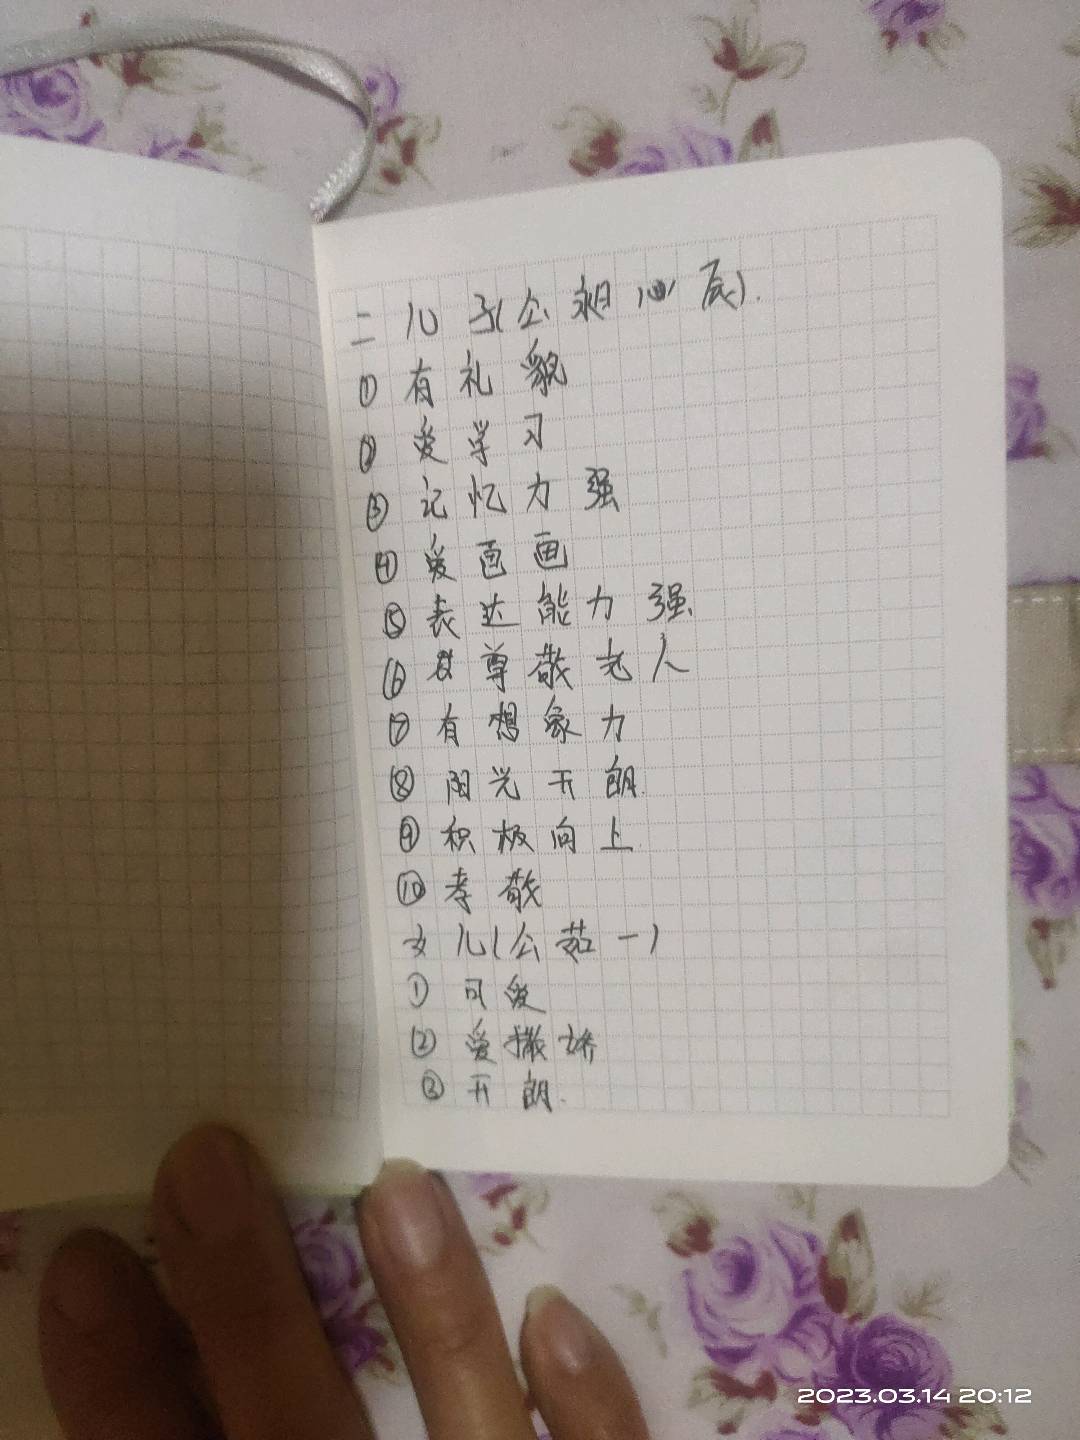 二 儿子(公昶沁辰).
① 有礼貌
② 爱学习
③ 记忆力强
④ 爱画画
⑤ 表达能力强
⑥ 尊敬老人
⑦ 有想象力
⑧ 阳光开朗.
⑨ 积极向上
⑩ 孝敬
女儿(公茹一)
① 可爱
② 爱撒娇
③ 开朗.
2023.03.14 20:12